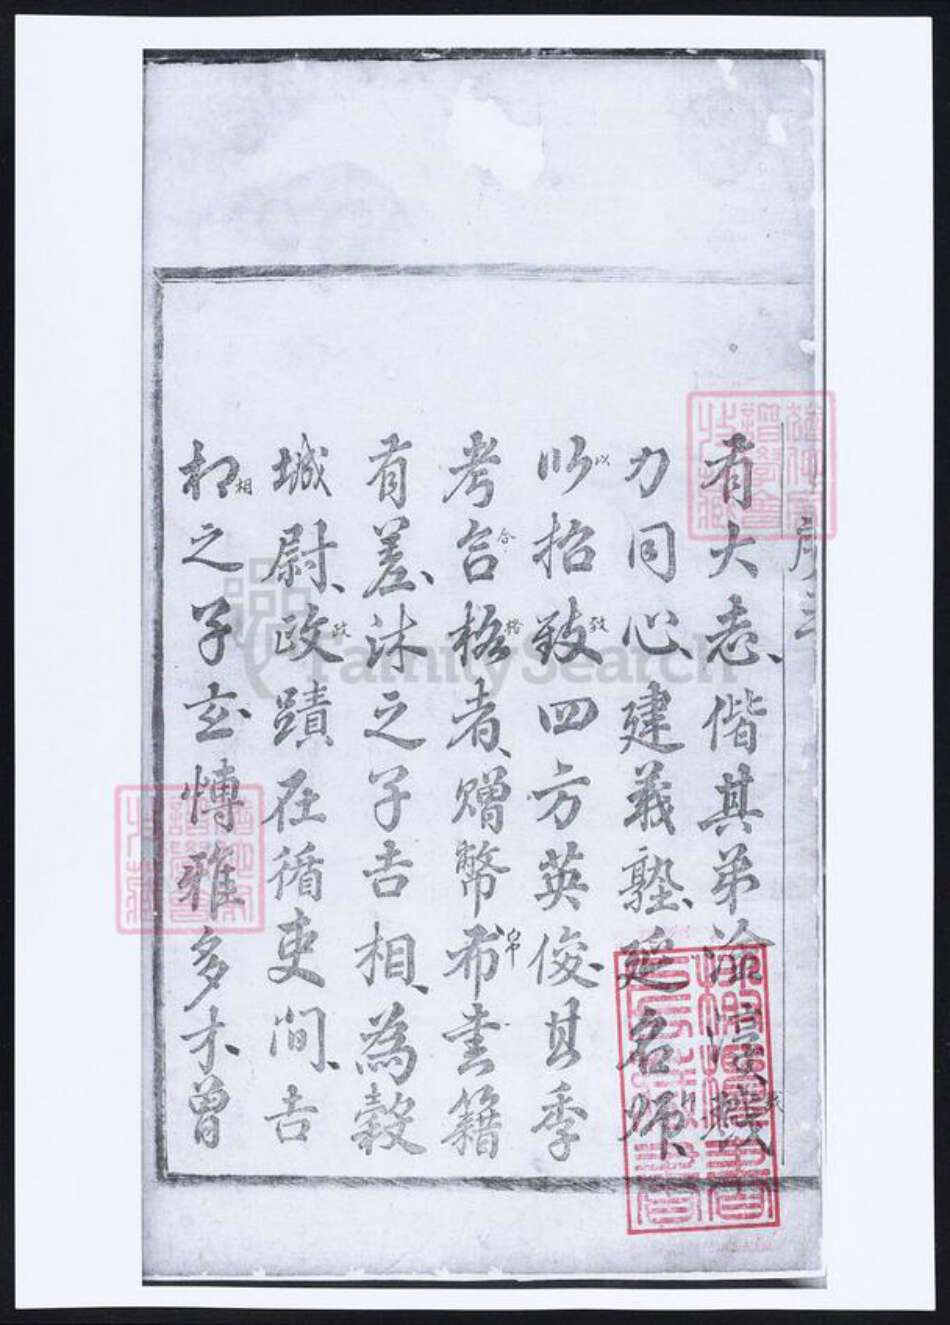 序三
有大志偕其弟淦溪戮
力同心建義塾延名師
以招致四方英俊其季
考合格者贈幣帛書籍
有差沐之子吉相為穀
城尉政蹟在循吏間吉
相之子玄博雅多才曾
FamilySearch